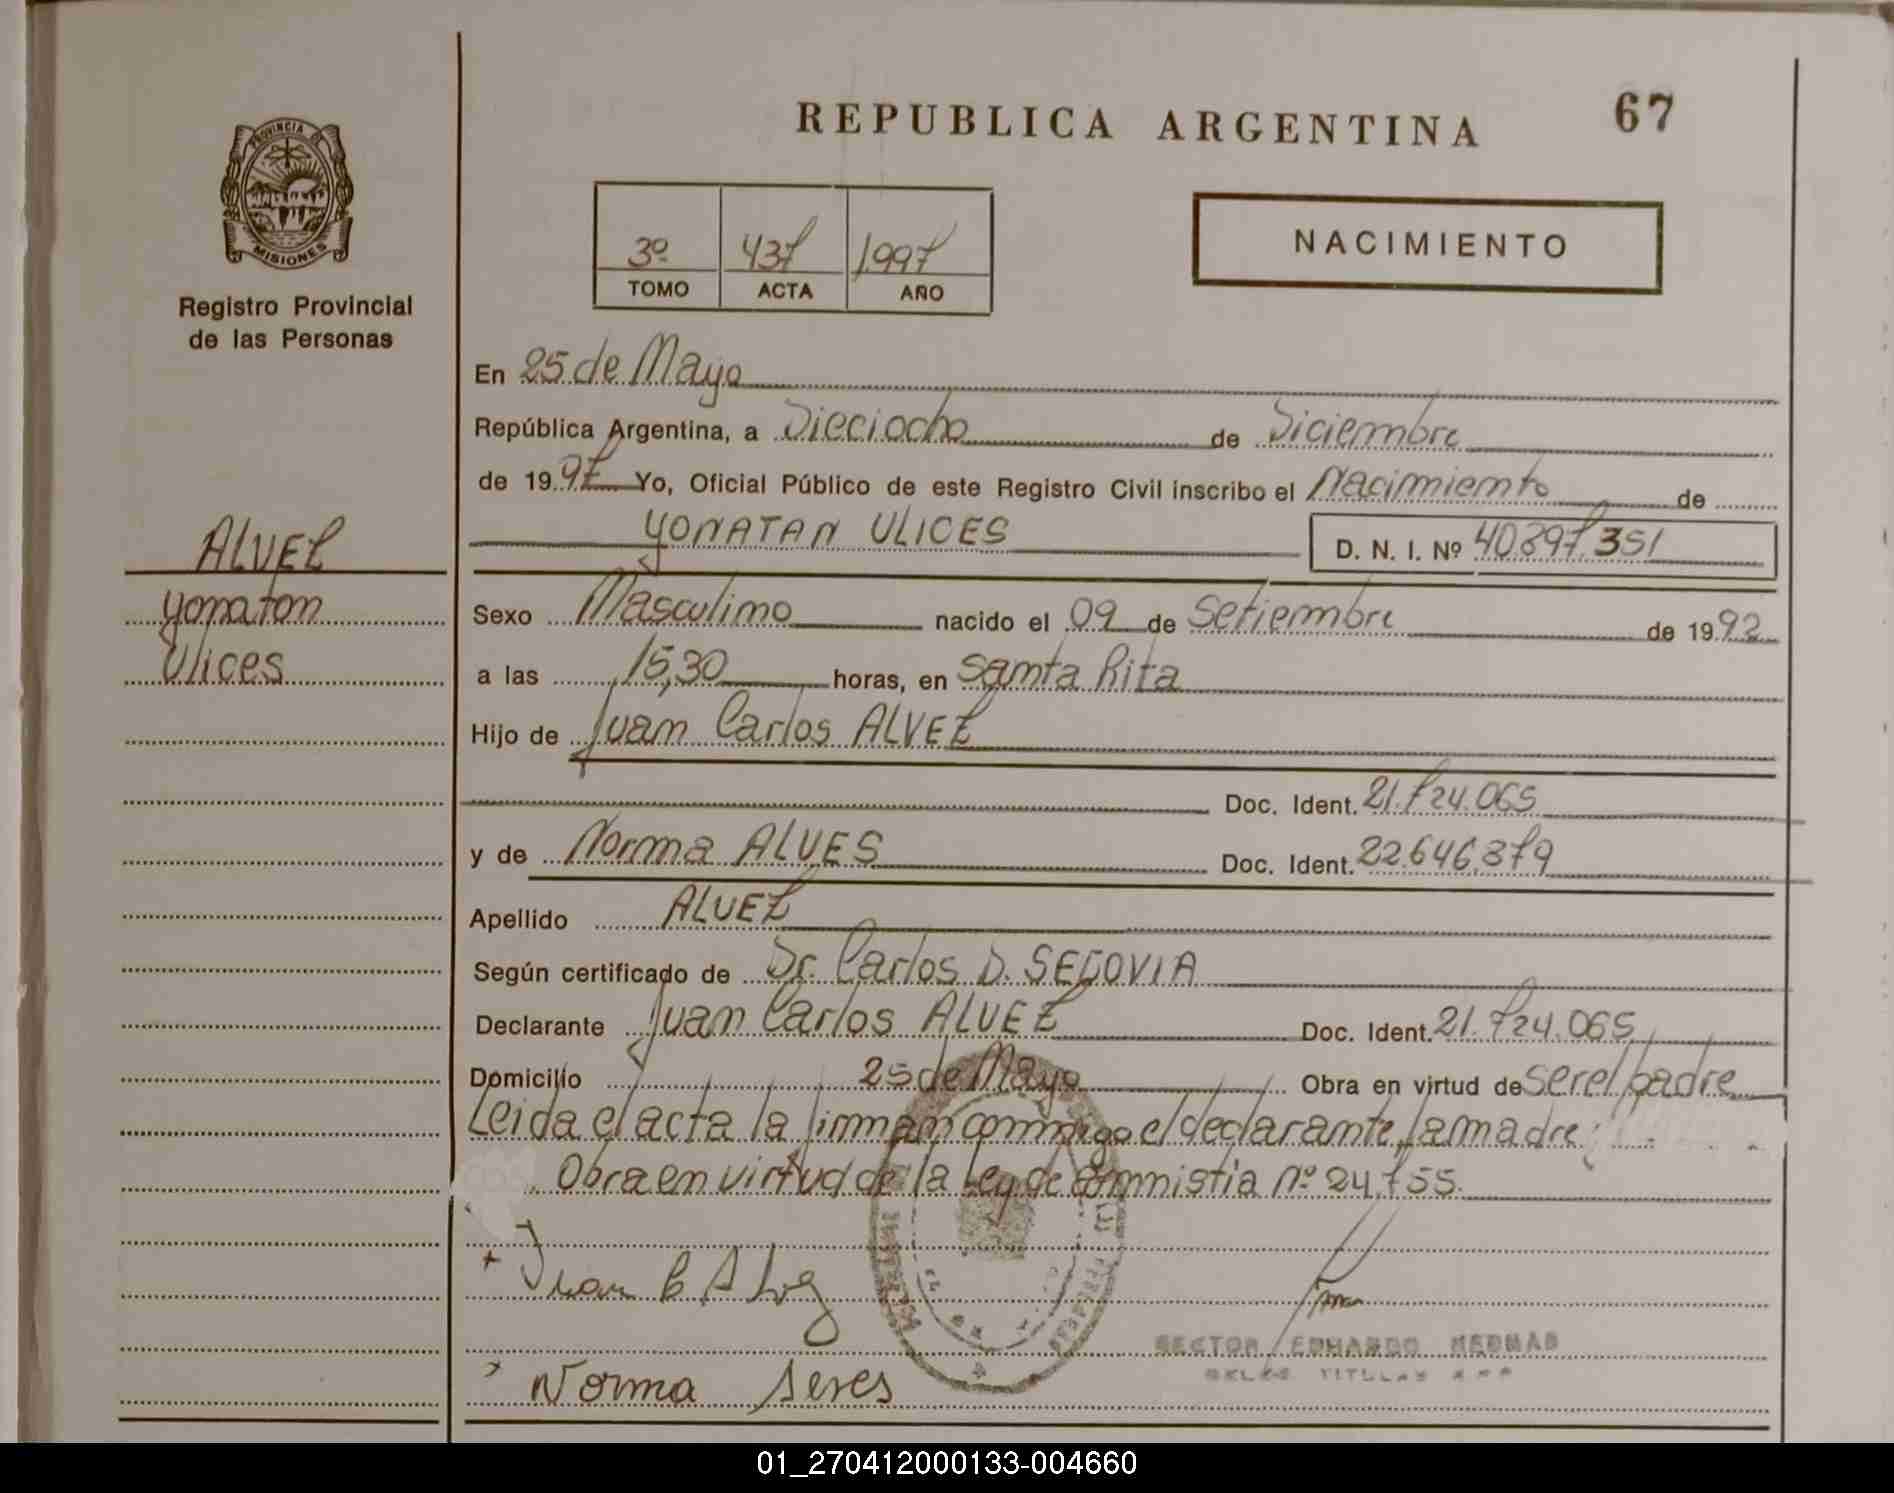 REPUBLICA ARGENTINA
67
PROVINCIA
MISIONES
Registro Provincial
de las Personas
3º 437 1997
TOMO ACTA AÑO
NACIMIENTO
En 25 de Mayo
República Argentina, a Dieciocho de Diciembre
de 1997 Yo, Oficial Público de este Registro Civil inscribo el Nacimiento de
YONATAN ULICES D. N. I. Nº 40.897.351
ALVEZ
Yonatan
Ulices
Sexo Masculino nacido el 09 de Setiembre de 1992
a las 15,30 horas, en Santa Rita
Hijo de Juan Carlos ALVEZ
Doc. Ident. 21.724.065
y de Norma ALVES Doc. Ident. 22.646.879
Apellido ALVEZ
Según certificado de Dr. Carlos D. SEGOVIA
Declarante Juan Carlos ALVEZ Doc. Ident. 21.724.065
Domicilio 25 de Mayo Obra en virtud de ser el padre
Leida el acta la firman conmigo el declarante, la madre
Obra en virtud de la Ley de Amnistia Nº 24.755
Juan C
Norma
EDUARDO
01_270412000133-004660